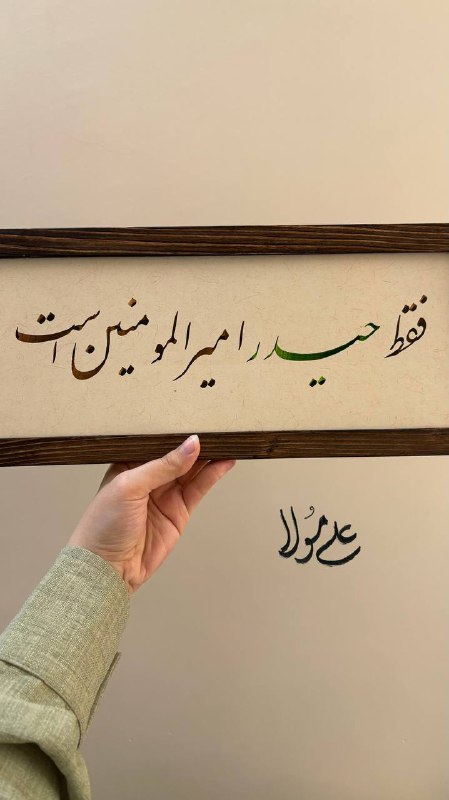 فقط حیدر امیرالمومنین است
علی مولا